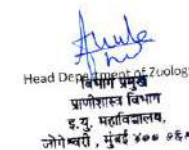 Head Department of Zoology
विभाग प्रमुख
प्राणीशास्त्र विभाग
इ.यु. महाविद्यालय,
जोगेश्वरी, मुंबई ४०० ०६०